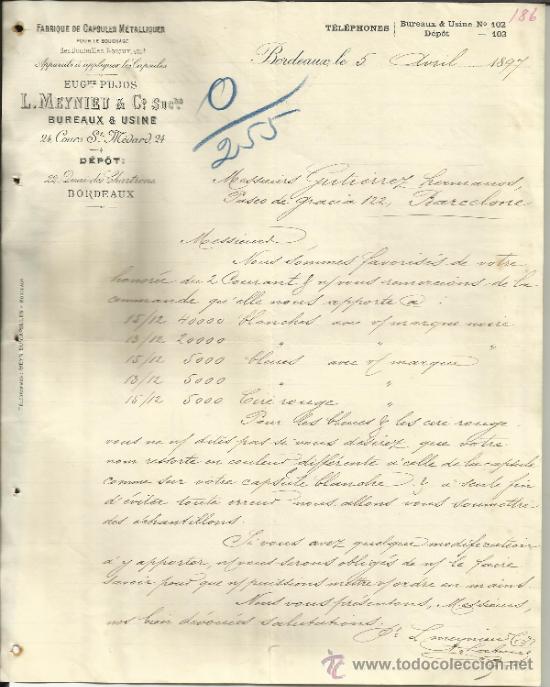 186
FABRIQUE DE CAPSULES MÉTALLIQUES
POUR LE BOUCHAGE
des Bouteilles, Flacons, etc.
Appareils à appliquer les Capsules
EUGNE PUJOS
L. MEYNIEU & Cie Succrs
BUREAUX & USINE
24, Cours St Médard, 24
DÉPÔT:
22, Quai des Chartrons
BORDEAUX
TÉLÉPHONES
Bureaux & Usine No 102
Dépôt — 103
Bordeaux, le 5 Avril 1897
0/255
Messieurs Gutierrez hermanos,
Paseo de Gracia 122, Barcelone
Messieurs
Nous sommes favorisés de votre
honorée du 2 Courant & n/ vous remercions de la
commande qu'elle nous apporte à :
15/12 40000 blanches avec v/ marque noire
13/12 20000 " "
15/12 5000 bleues avec v/ marque
13/12 5000 " "
15/12 5000 Cire rouge "
Pour les bleues & les cire rouge
vous ne n/ dites pas si vous désirez que votre
nom ressorte en couleur différente à celle de la capsule
comme sur votre capsule blanche & à seule fin
d'éviter toute erreur nous allons vous soumettre
des échantillons.
Si vous avez quelque modification
à y apporter, n/ vous serons obligés de n/ le faire
savoir pour que n/ puissions mettre v/ ordre en mains.
Nous vous présentons, Messieurs,
nos bien dévouées salutations.
L Meynieu & Cie
todocoleccion.net